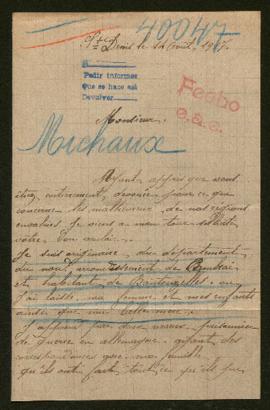 40047
St Denis le 14 Août 1917.
R
Pedir informes
Que se hace acá
Devolver
Fecho
e.a.e.
Monsieur.
Michaux
Ayant appris que vous
êtes entièrement dévoué pour ce que
concerne les malheureux de nos régions
envahies. Je viens à mon tour solliciter
votre bon vouloir.
Je suis originaire du département
du nord arrondissement de Cambrai
et habitant de
j'ai laissé ma femme et mes enfants
ainsi que ma belle-mère.
J'apprends par deux prisonniers
de Guerre en allemagne. ayant des
correspondances avec ma famille
qu'ils ont fait